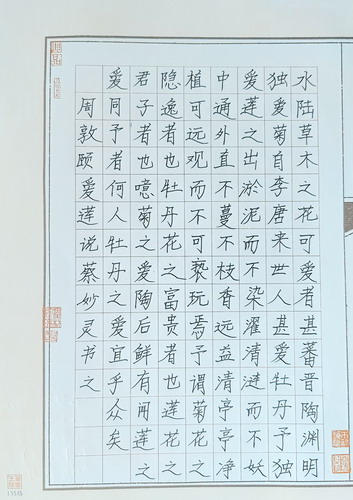 水陆草木之花可爱者甚蕃晋陶渊明
独爱菊自李唐来世人甚爱牡丹予独
爱莲之出淤泥而不染濯清涟而不妖
中通外直不蔓不枝香远益清亭亭净
植可远观而不可亵玩焉予谓菊花之
隐逸者也牡丹花之富贵者也莲花之
君子者也噫菊之爱陶后鲜有闻莲之
爱同予者何人牡丹之爱宜乎众矣
周敦颐爱莲说蔡妙灵书之